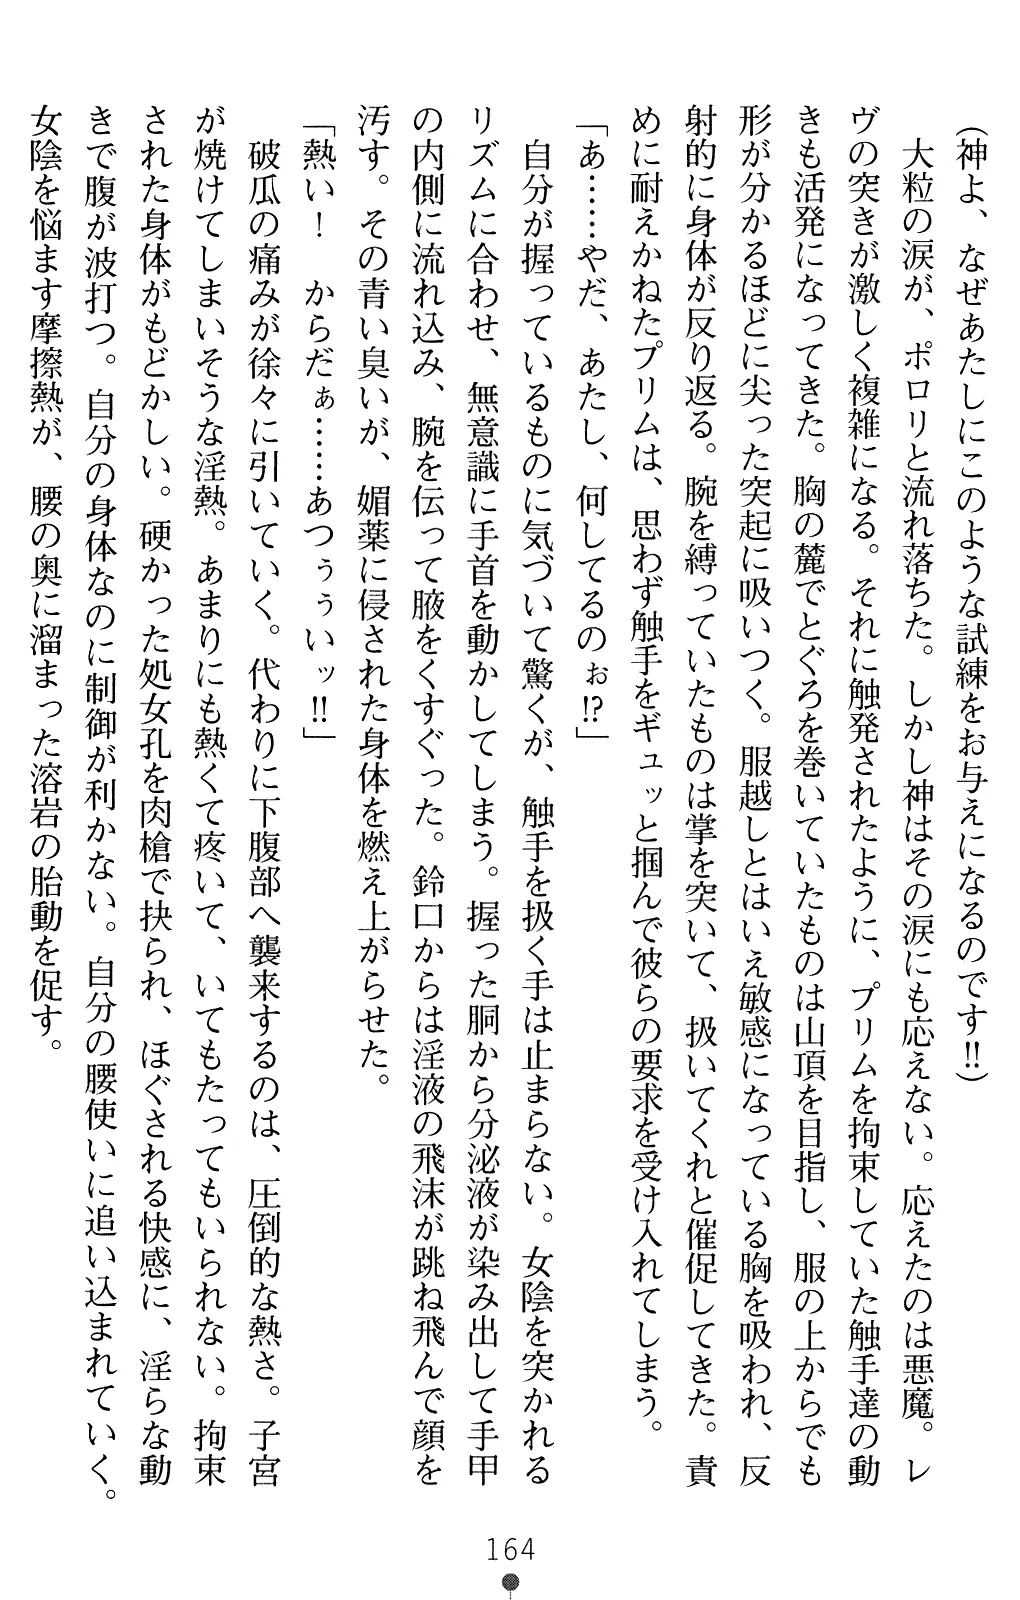 (神よ、なぜあたしにこのような試練をお与えになるのです!!)
大粒の涙が、ポロリと流れ落ちた。しかし神はその涙にも応えない。応えたのは悪魔。レ
ヴの突きが激しく複雑になる。それに触発されたように、プリムを拘束していた触手達の動
きも活発になってきた。胸の麓でとぐろを巻いていたものは山頂を目指し、服の上からでも
形が分かるほどに尖った突起に吸いつく。服越しとはいえ敏感になっている胸を吸われ、反
射的に身体が反り返る。腕を縛っていたものは掌を突いて、扱いてくれと催促してきた。責
めに耐えかねたプリムは、思わず触手をギュッと掴んで彼らの要求を受け入れてしまう。
「あ……やだ、あたし、何してるのぉ!?」
自分が握っているものに気づいて驚くが、触手を扱く手は止まらない。女陰を突かれる
リズムに合わせ、無意識に手首を動かしてしまう。握った胴から分泌液が染み出して手甲
の内側に流れ込み、腕を伝って腋をくすぐった。鈴口からは淫液の飛沫が跳ね飛んで顔を
汚す。その青い臭いが、媚薬に侵された身体を燃え上がらせた。
「熱い！　からだぁ……あつぅぅいッ!!」
破瓜の痛みが徐々に引いていく。代わりに下腹部へ襲来するのは、圧倒的な熱さ。子宮
が焼けてしまいそうな淫熱。あまりにも熱くて疼いて、いてもたってもいられない。拘束
された身体がもどかしい。硬かった処女孔を肉槍で抉られ、ほぐされる快感に、淫らな動
きで腹が波打つ。自分の身体なのに制御が利かない。自分の腰使いに追い込まれていく。
女陰を悩ます摩擦熱が、腰の奥に溜まった溶岩の胎動を促す。
164